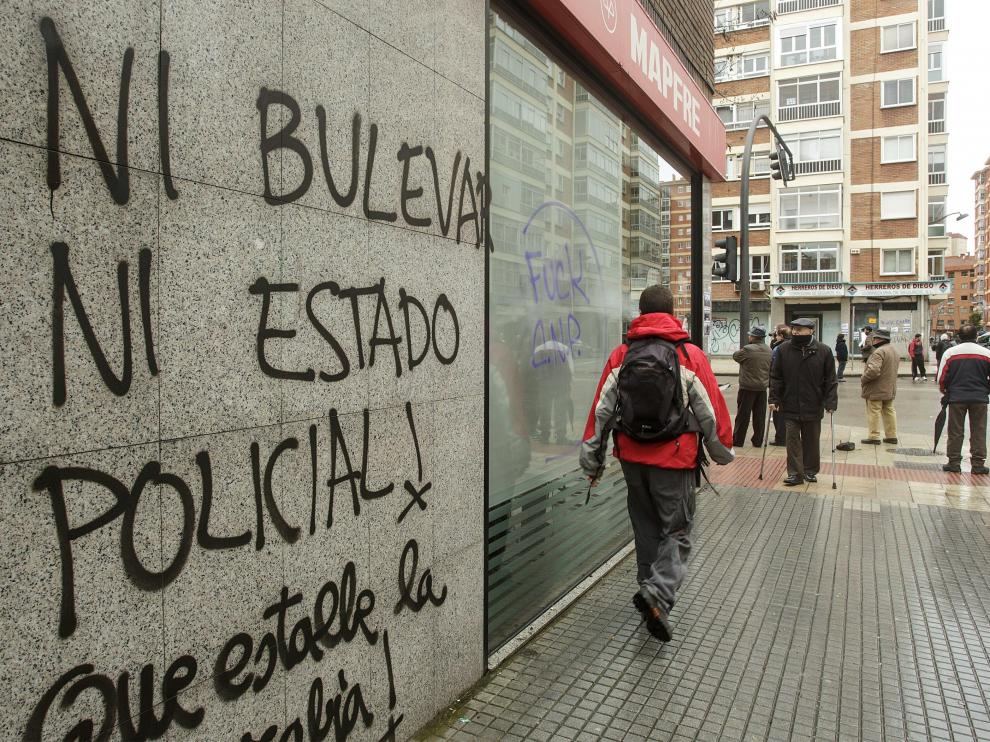 NI BULEVAR
NI ESTADO
POLICIAL!
Que estalle la
rabia!
MAPFRE
FUCK
HERREROS DE DIEGO
HERREROS DE DIEGO